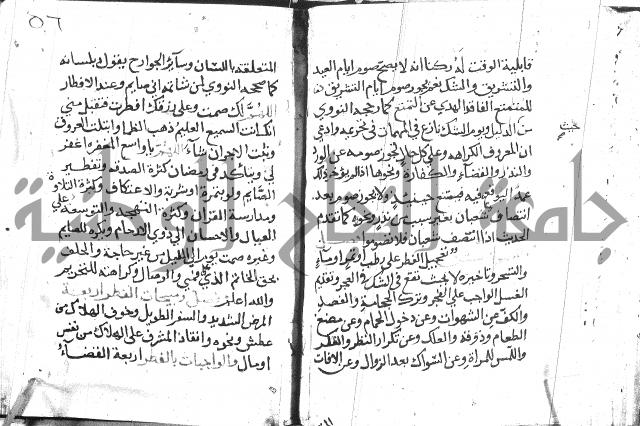 قابلية الوقت له ركنا انه لا يصح صوم ايام العيد
والتشريق والشك نعم يجوز صوم ايام التشريق
للمتمتع الفاقد الهدي عن التمتع كما رجحه النووي
من الدليل ويوم الشك نازع في المهمات في تحريمه وادعى
ان المعروف الكراهة وعلى كل حال يجوز صومه عن الورد
والنذر والقضاء والكفارة ونحوها
حينئذ ولا يجوز صوم بعد
انتصاف شعبان بغير سبب من نذر ونحوه كما تقدم
الحديث اذا انتصف شعبان فلا تصوموا
تعجيل الفطر على رطب او تمر او ماء
والسحور وتاخيره لا بحيث تقع في الشك في الفجر وتقديم
الغسل الواجب على الفجر وترك الحجامة والفصد
والكف عن الشهوات وعن دخول الحمام وعن مضغ
الطعام وذوقه والعلك وعن تكرار النظر والفكر
واللمس للمراة وعن السواك بعد الزوال وعن الافات
٥٦
المتعلقة باللسان وسائر الجوارح بقول بلسانه
كما صححه النووي لمن شاتمه اني صايم وعند الافطار
اللهم لك صمت وعلى رزقك افطرت فتقبل مني
انك انت السميع العليم ذهب الظما وابتلت العروق
وثبت الاجر ان شاء الله يا واسع المغفرة اغفر
لي ويتاكد في رمضان كثرة الصدقة وتفطير
الصايم ولو بتمرة او شربة والاعتكاف وكثرة التلاوة
ومدارسة القران وكثرة التهجد والتوسعة على
العيال والاحسان الى ذوي الارحام ويكره للصايم
وغيره صمت يوم الى الليل من غير حاجة والحلف
بحق الخاتم الذي على فمي والوصال وكراهته للتحريم
والله اعلم فصل ومبيحات الفطر اربعة
المرض الشديد والسفر الطويل وخوف الهلاك من
عطش ونحوه وانقاذ المشرف على الهلاك من نفس
او مال والواجبات بالفطر اربعة القضاء
جامعة النجاح الوطنية